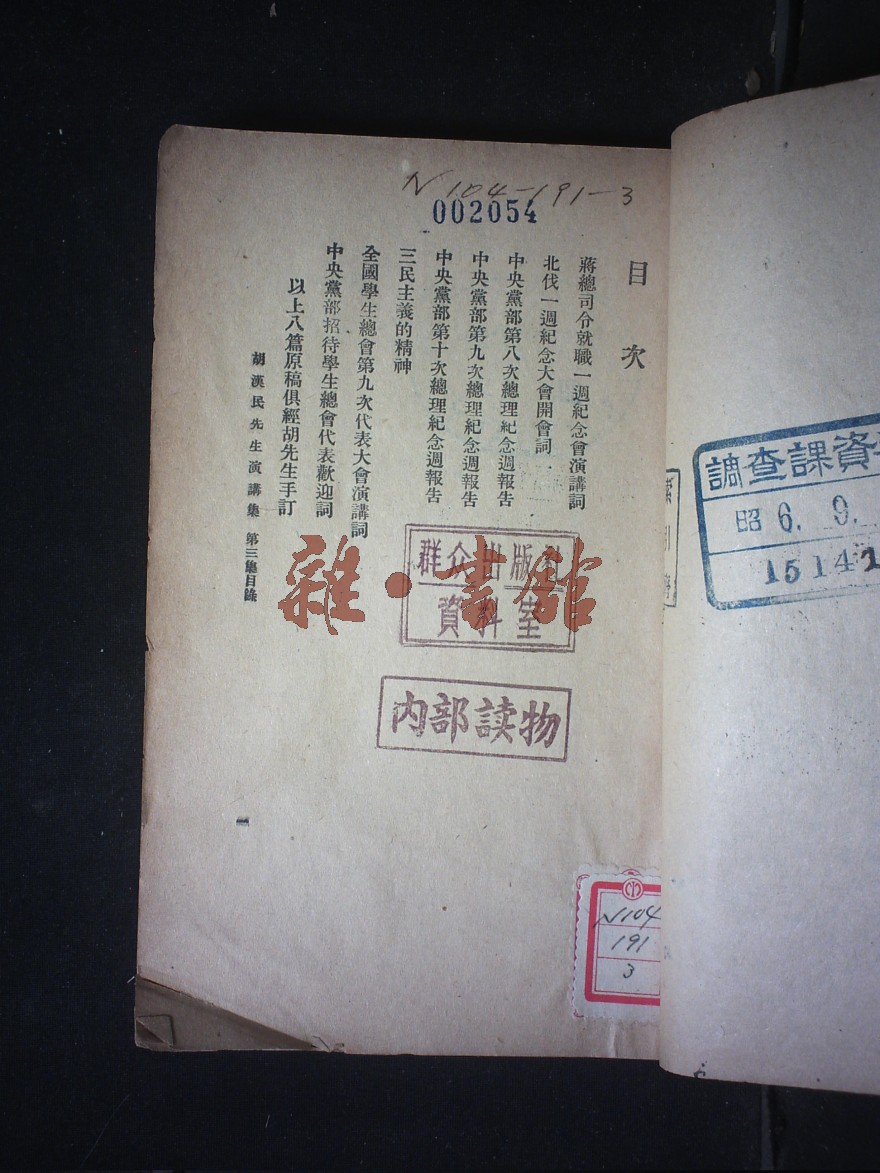 N 104-191-3
002054
目次
蔣總司令就職一週紀念會演講詞
北伐一週紀念大會開會詞
中央黨部第八次總理紀念週報告
中央黨部第九次總理紀念週報告
中央黨部第十次總理紀念週報告
三民主義的精神
全國學生總會第九次代表大會演講詞
中央黨部招待學生總會代表歡迎詞
以上八篇原稿俱經胡先生手訂
胡漢民先生演講集 第三集目錄
一
群众出版社
資料室
雜·書館
内部读物
N104
191
3
調查課資
昭 6. 9.
15142